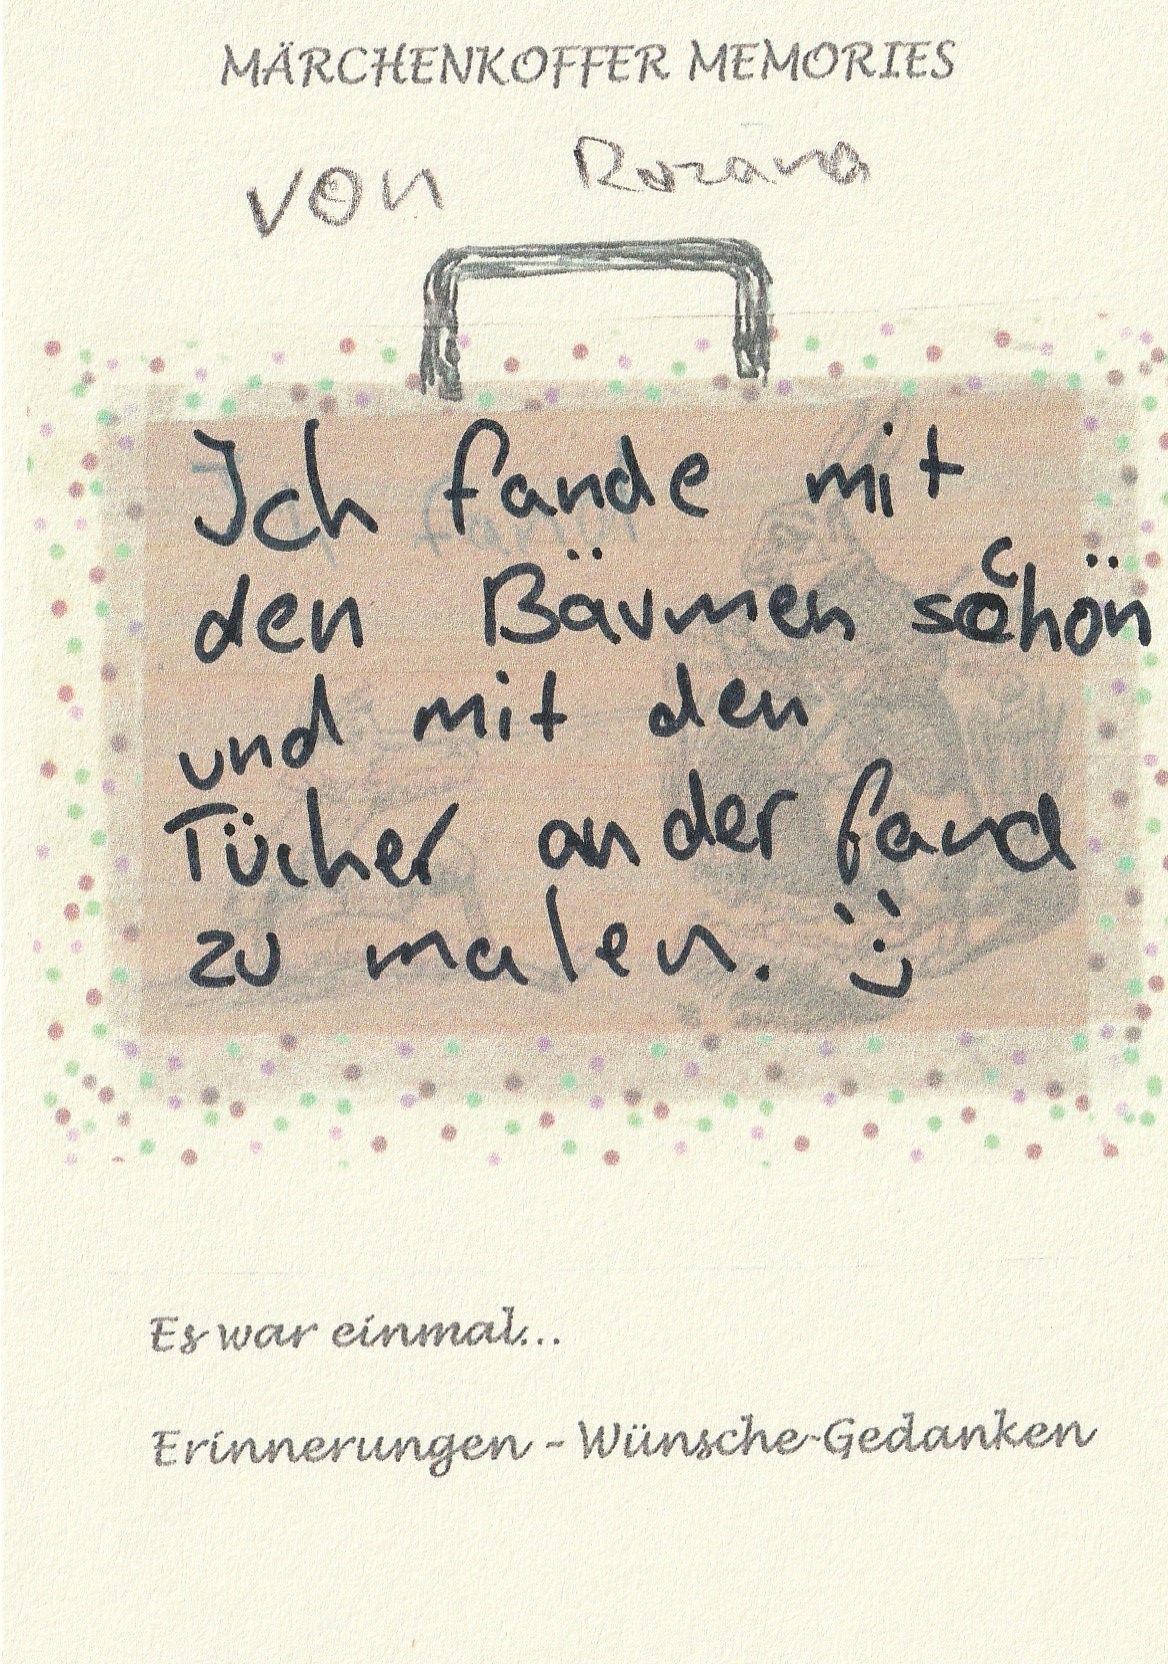 MÄRCHENKOFFER MEMORIES
von Rozana
Ich fande mit
den Bäumen schön
und mit den
Tücher an der fand
zu malen. :)
Es war einmal...
Erinnerungen - Wünsche-Gedanken